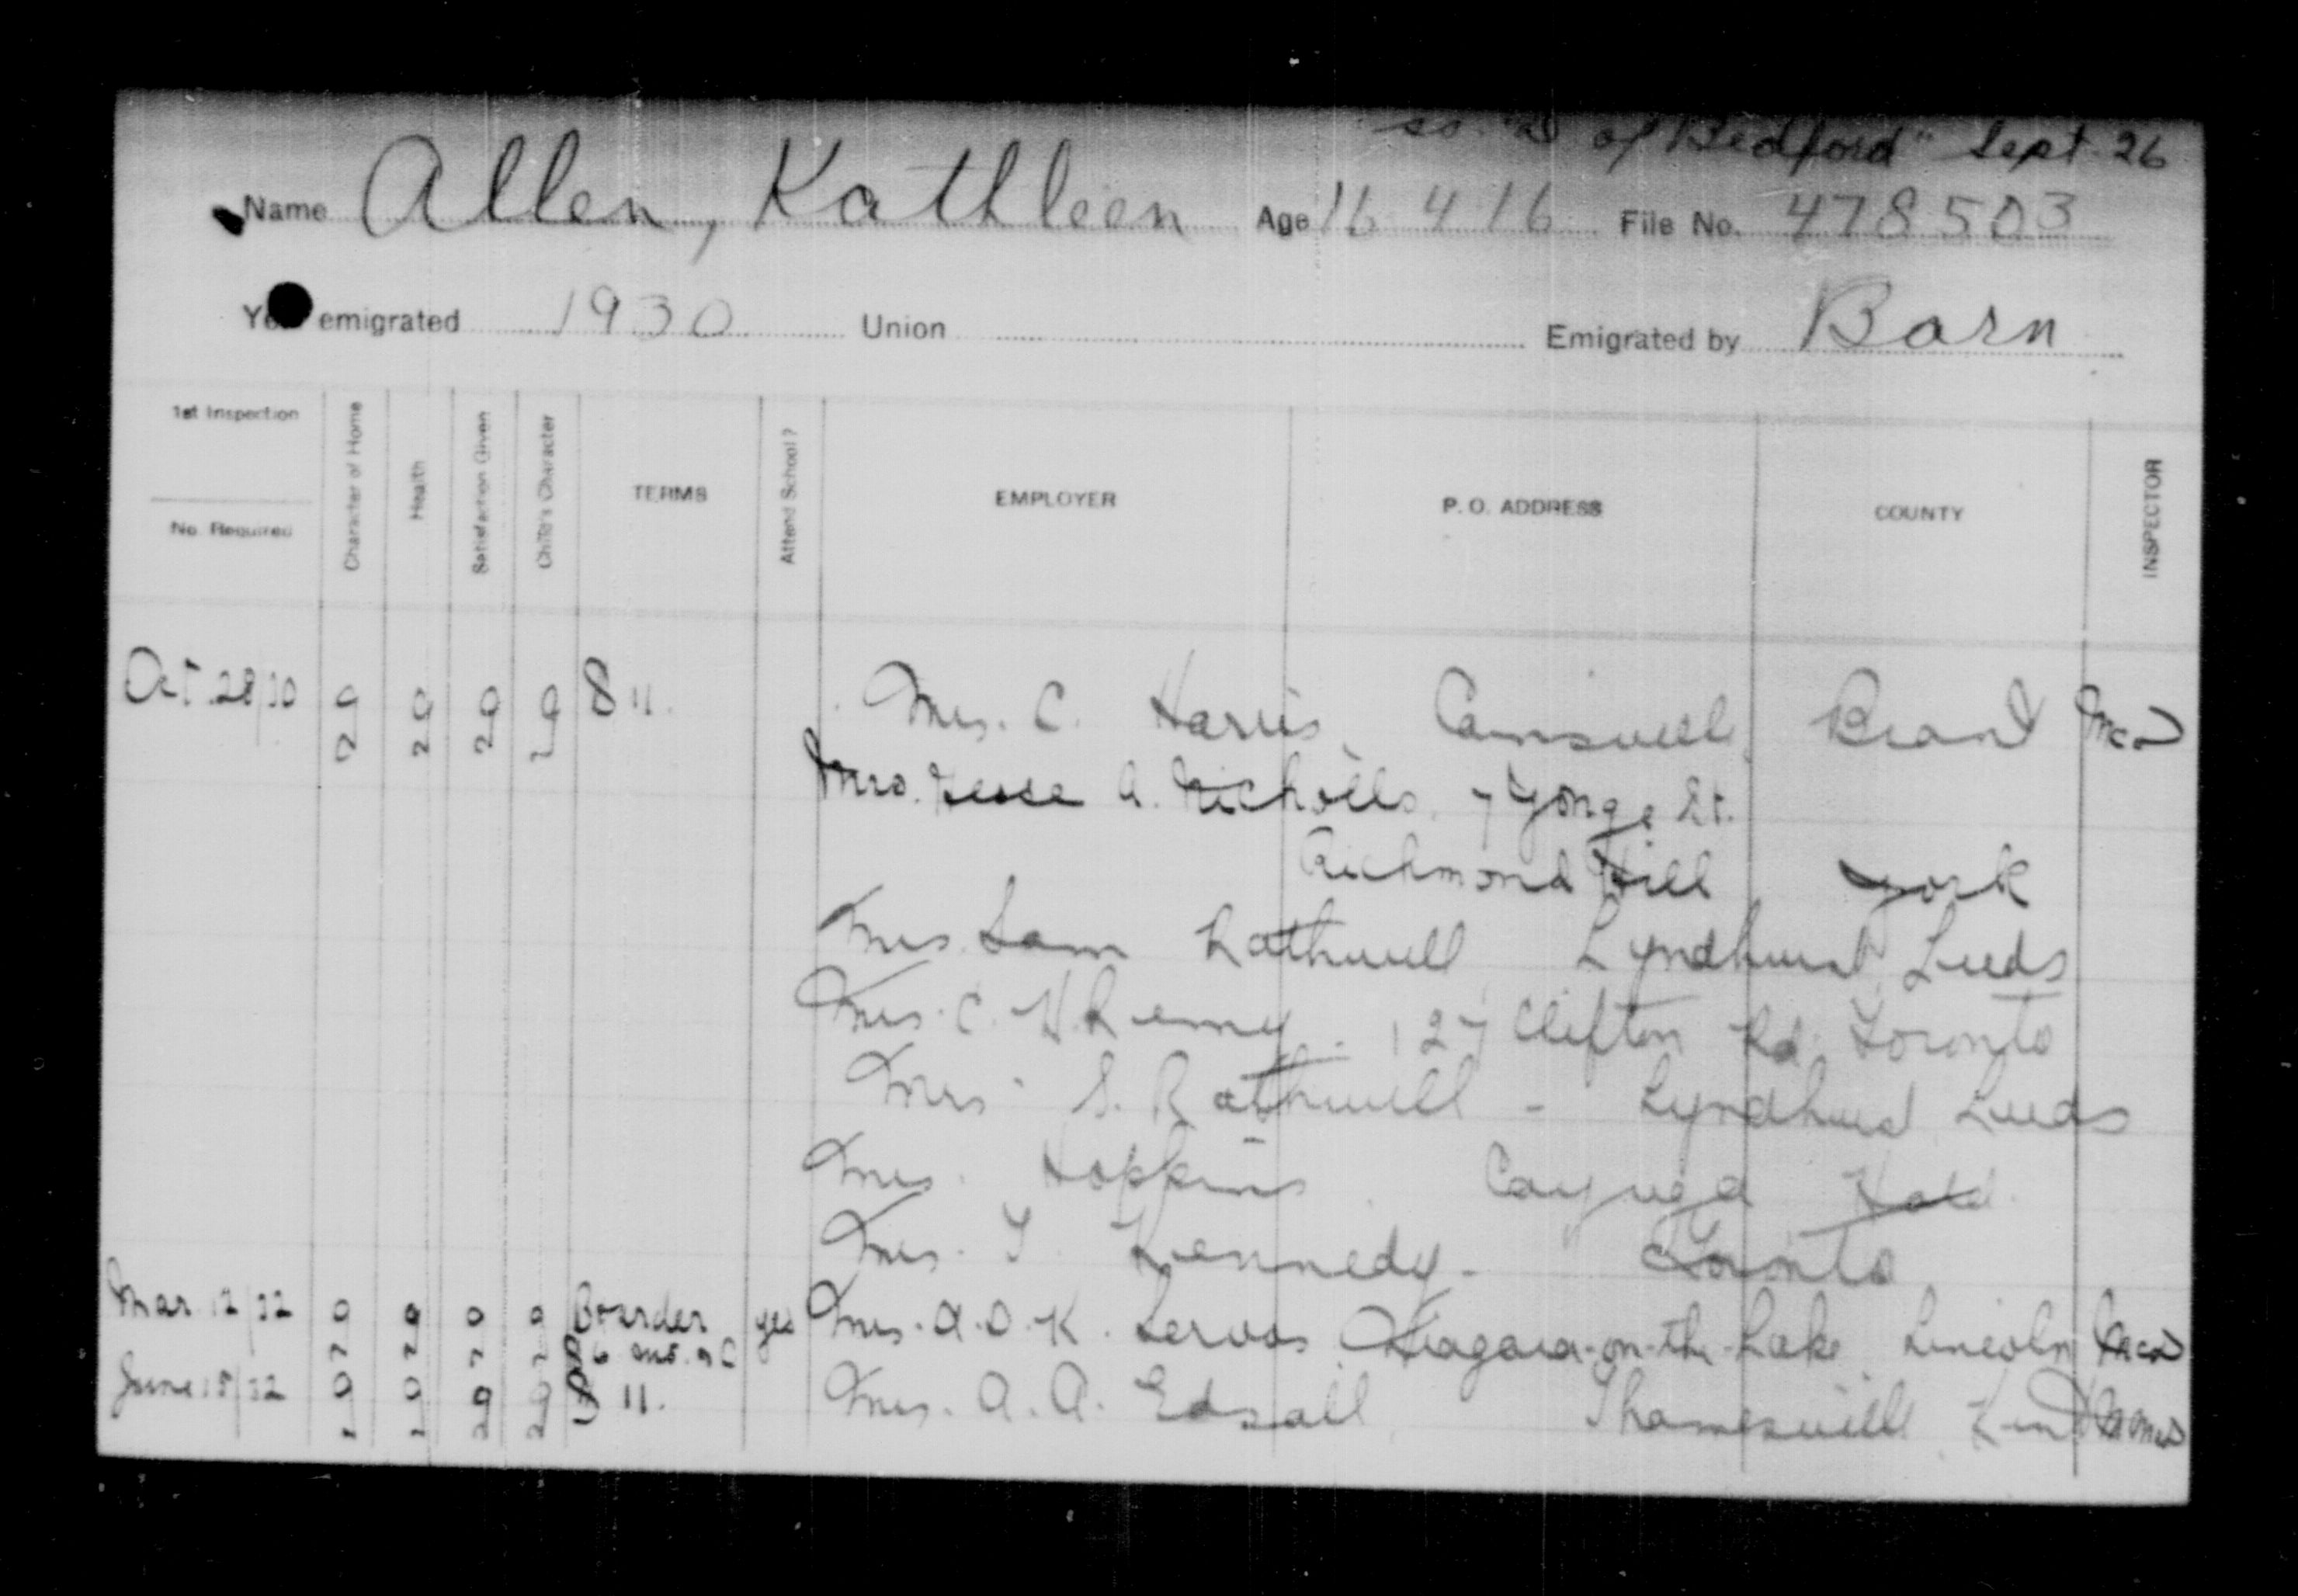 ss. "D of Bedford" Sept. 26
Name Allen, Kathleen Age 16 4 16 File No. 478503
Year emigrated 1930 Union Emigrated by Barn
1st Inspection
No. Required
Character of Home
Health
Satisfaction Given
Child's Character
TERMS
Attend School?
EMPLOYER
P. O. ADDRESS
COUNTY
INSPECTOR
Oct. 28/30 g g g g 8 11. Mrs. C. Harris, Cainsville, Brant
Mrs. Jesse A. Nicholls. 7 Yonge St.
Richmond Hill York
Mrs. Sam Rathwell Lyndhurst Leeds
Mrs. C. H. 127 Clifton Rd. Toronto
Mrs. S. Rathwell - Lyndhurst Leeds
Mrs. Hopkins. Cayuga Hald.
Mrs. T. Kennedy - Toronto
Mar. 12/32 g g g g Boarder yes Mrs. A. D. K. Servos Niagara-on-the-Lake Lincoln
June 15/32 g g g g 11. Mrs. A. A. Edsall Thamesville Kent